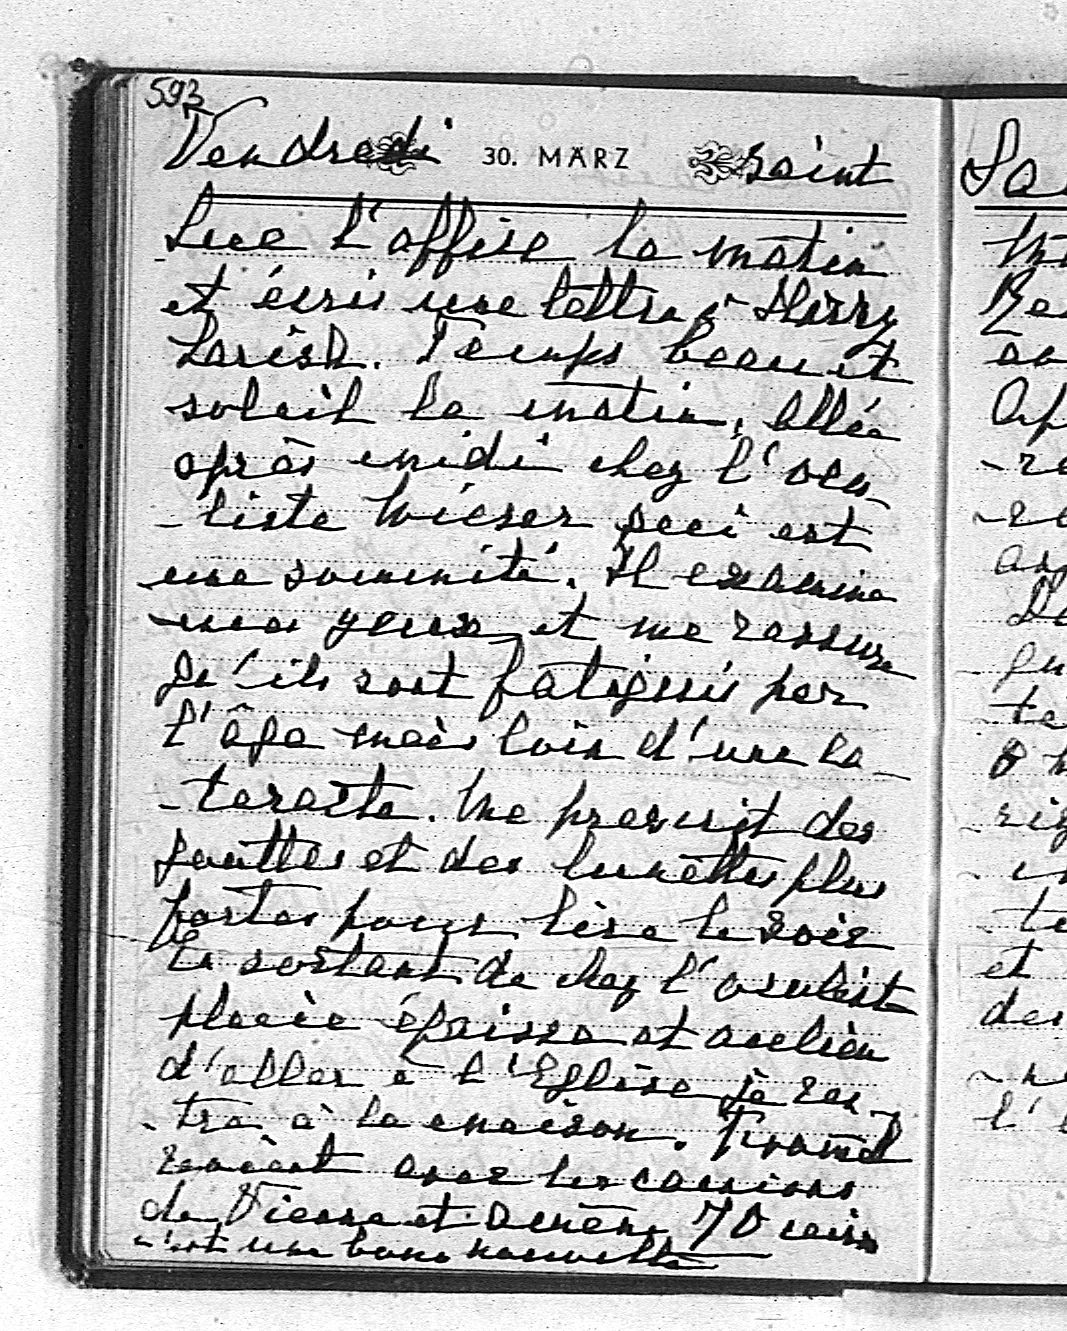 593
Vendredi 30. MÄRZ saint
Lue l'office le matin
et écris une lettre à Harry
Larisch. Temps beau et
soleil le matin, allée
après midi chez l'ocu-
-liste Wieser qui est
une sommité. Il examine
mes yeux et me rassure
qu'ils sont fatigués par
l'âge mais loin d'une ca-
-taracte. Me prescrit des
gouttes et des lunettes plus
fortes pour lire le soir
En sortant de chez l'oculist
pluie épaisse et au lieu
d'aller à l'Eglise je ren-
-tra à la maison.
revient avec les camions
de Vienne et amène 70
c'est une bonne nouvelle
Sa
et
des
l'